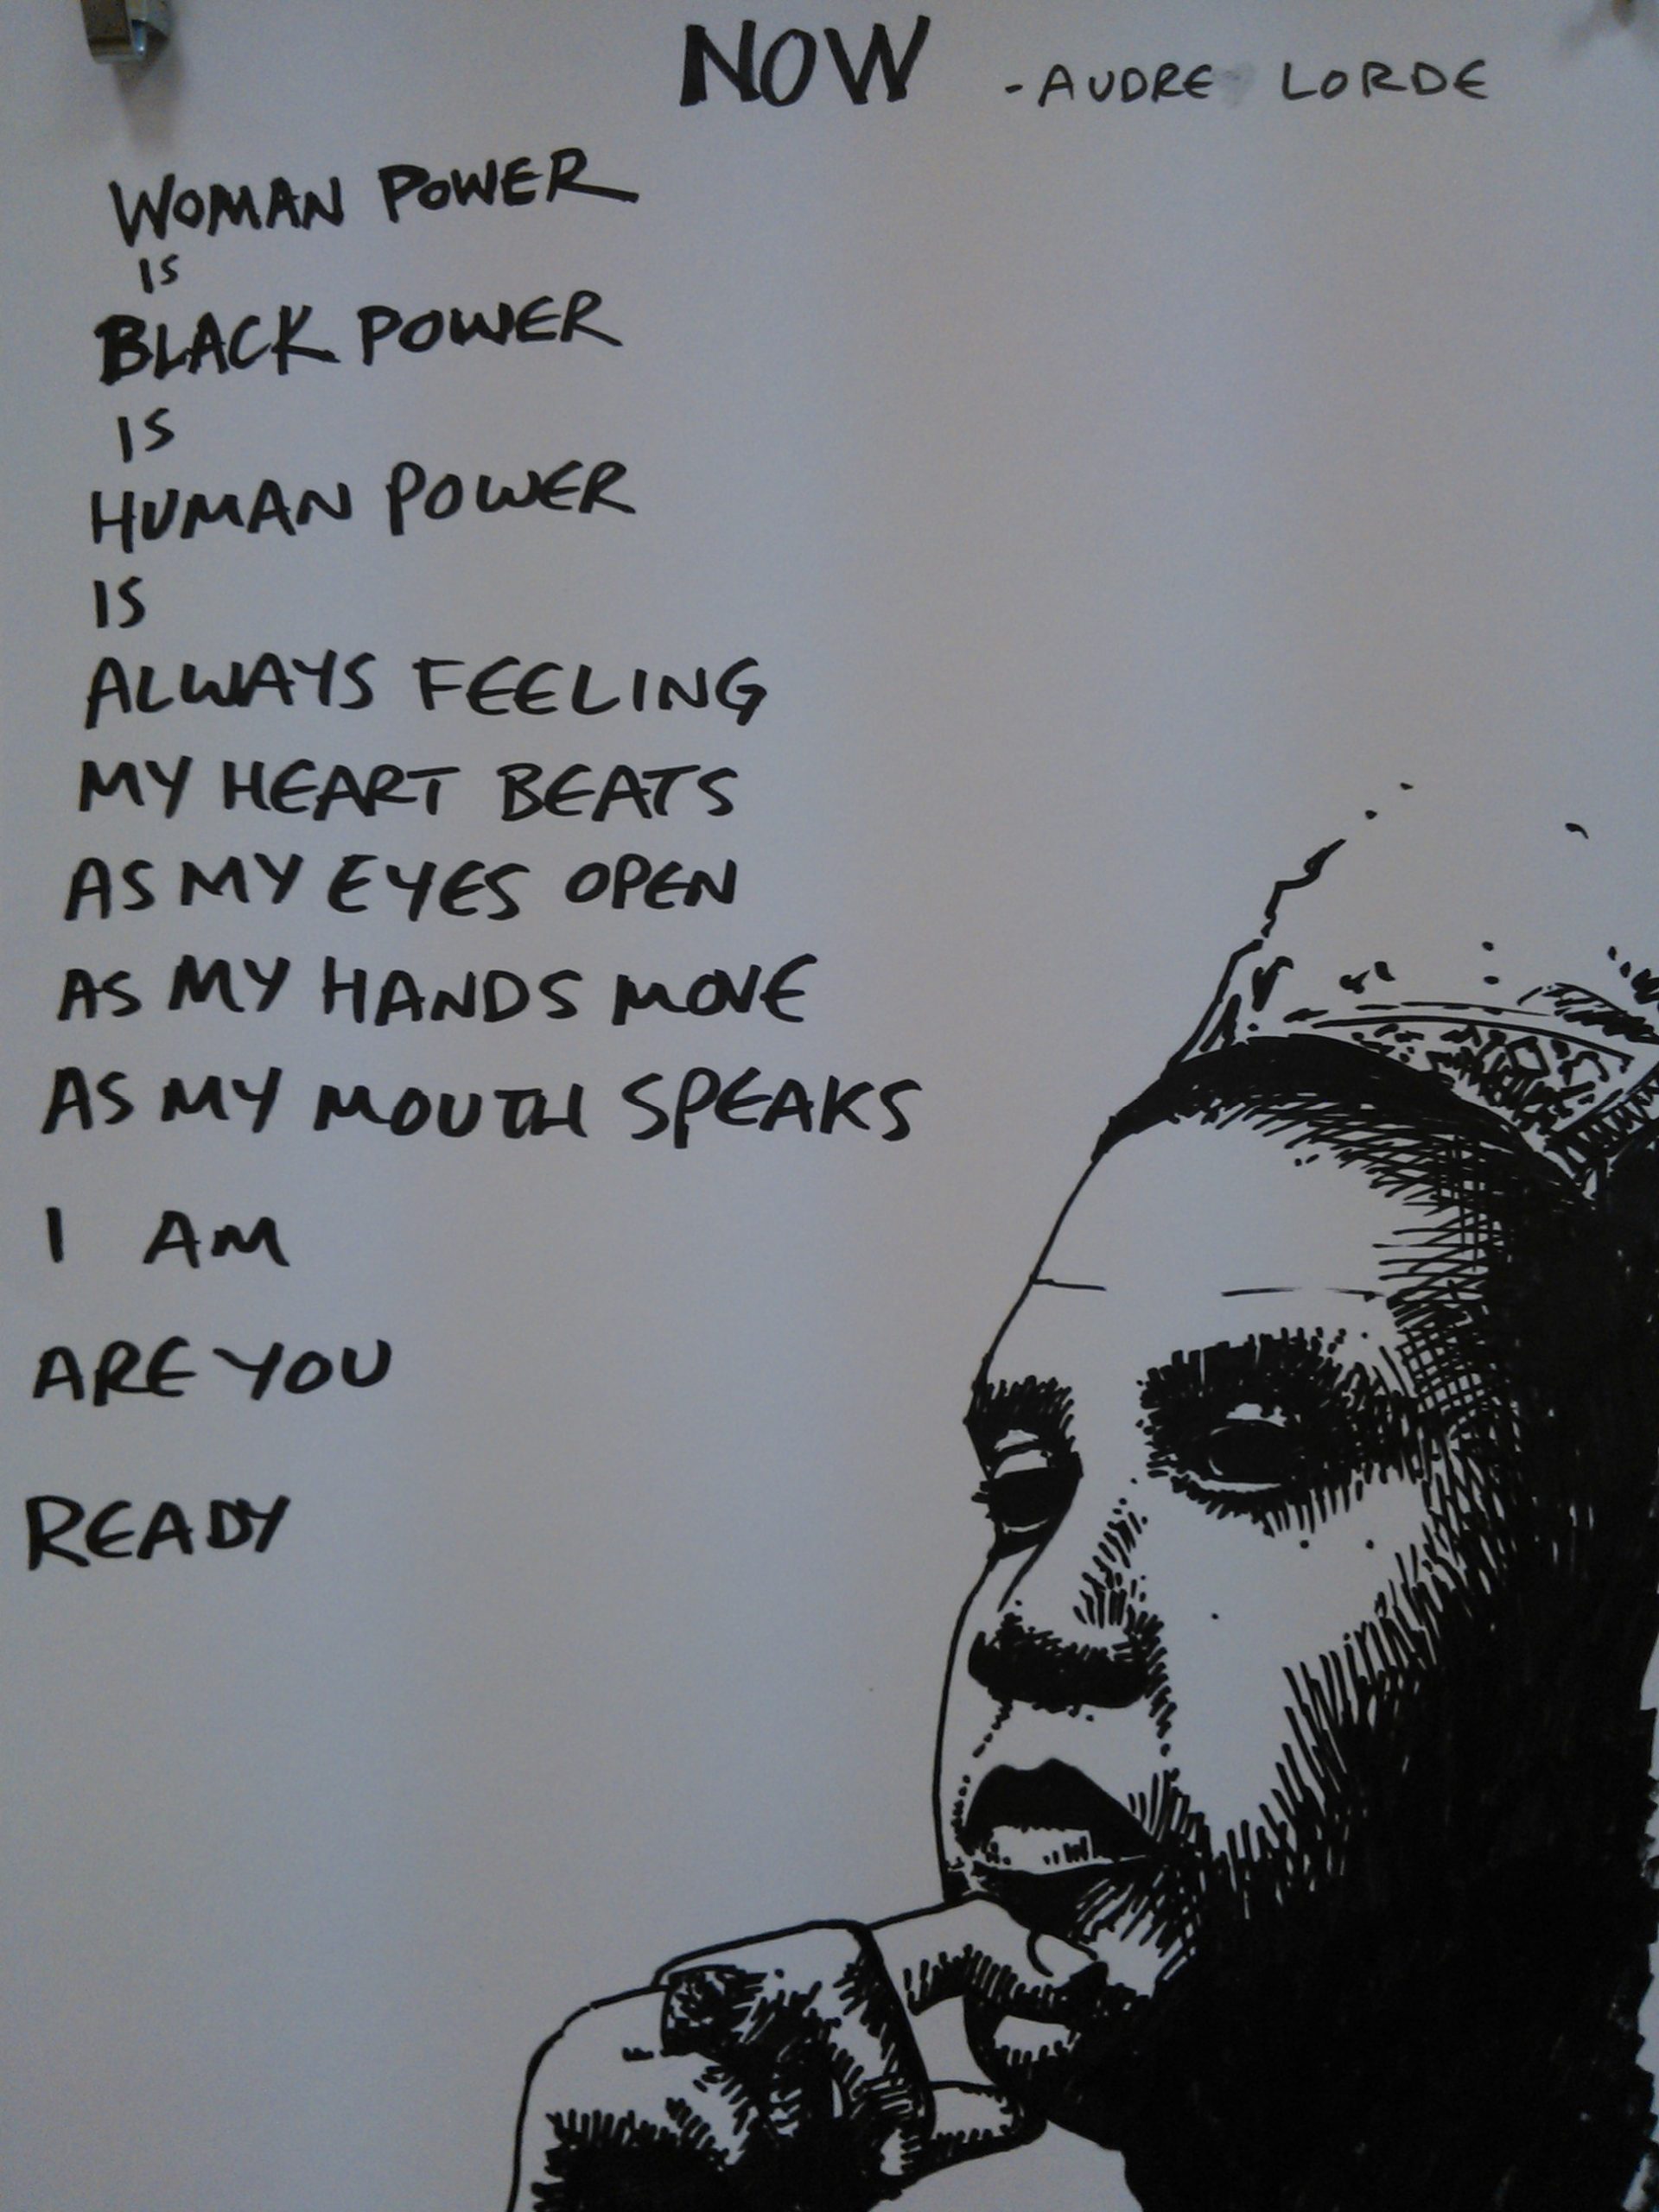 NOW - AUDRE LORDE
WOMAN POWER
IS
BLACK POWER
IS
HUMAN POWER
IS
ALWAYS FEELING
MY HEART BEATS
AS MY EYES OPEN
AS MY HANDS MOVE
AS MY MOUTH SPEAKS
I AM
ARE YOU
READY